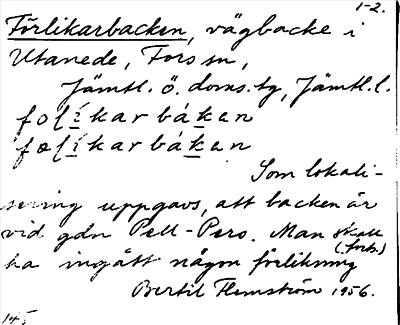 1-2.
Förlikarbacken, vägbacke i
Utanede, Fors sn,
Jämtl. ö. doms.tg, Jämtl. l.
folíkarbákan
fœlíkarbákan
Som lokali-
sering uppgavs, att backen är
vid gdn Pell-Pers. Man skall
(förb.)
ha ingått någon förlikning
Bertil Flemström 1956.
145